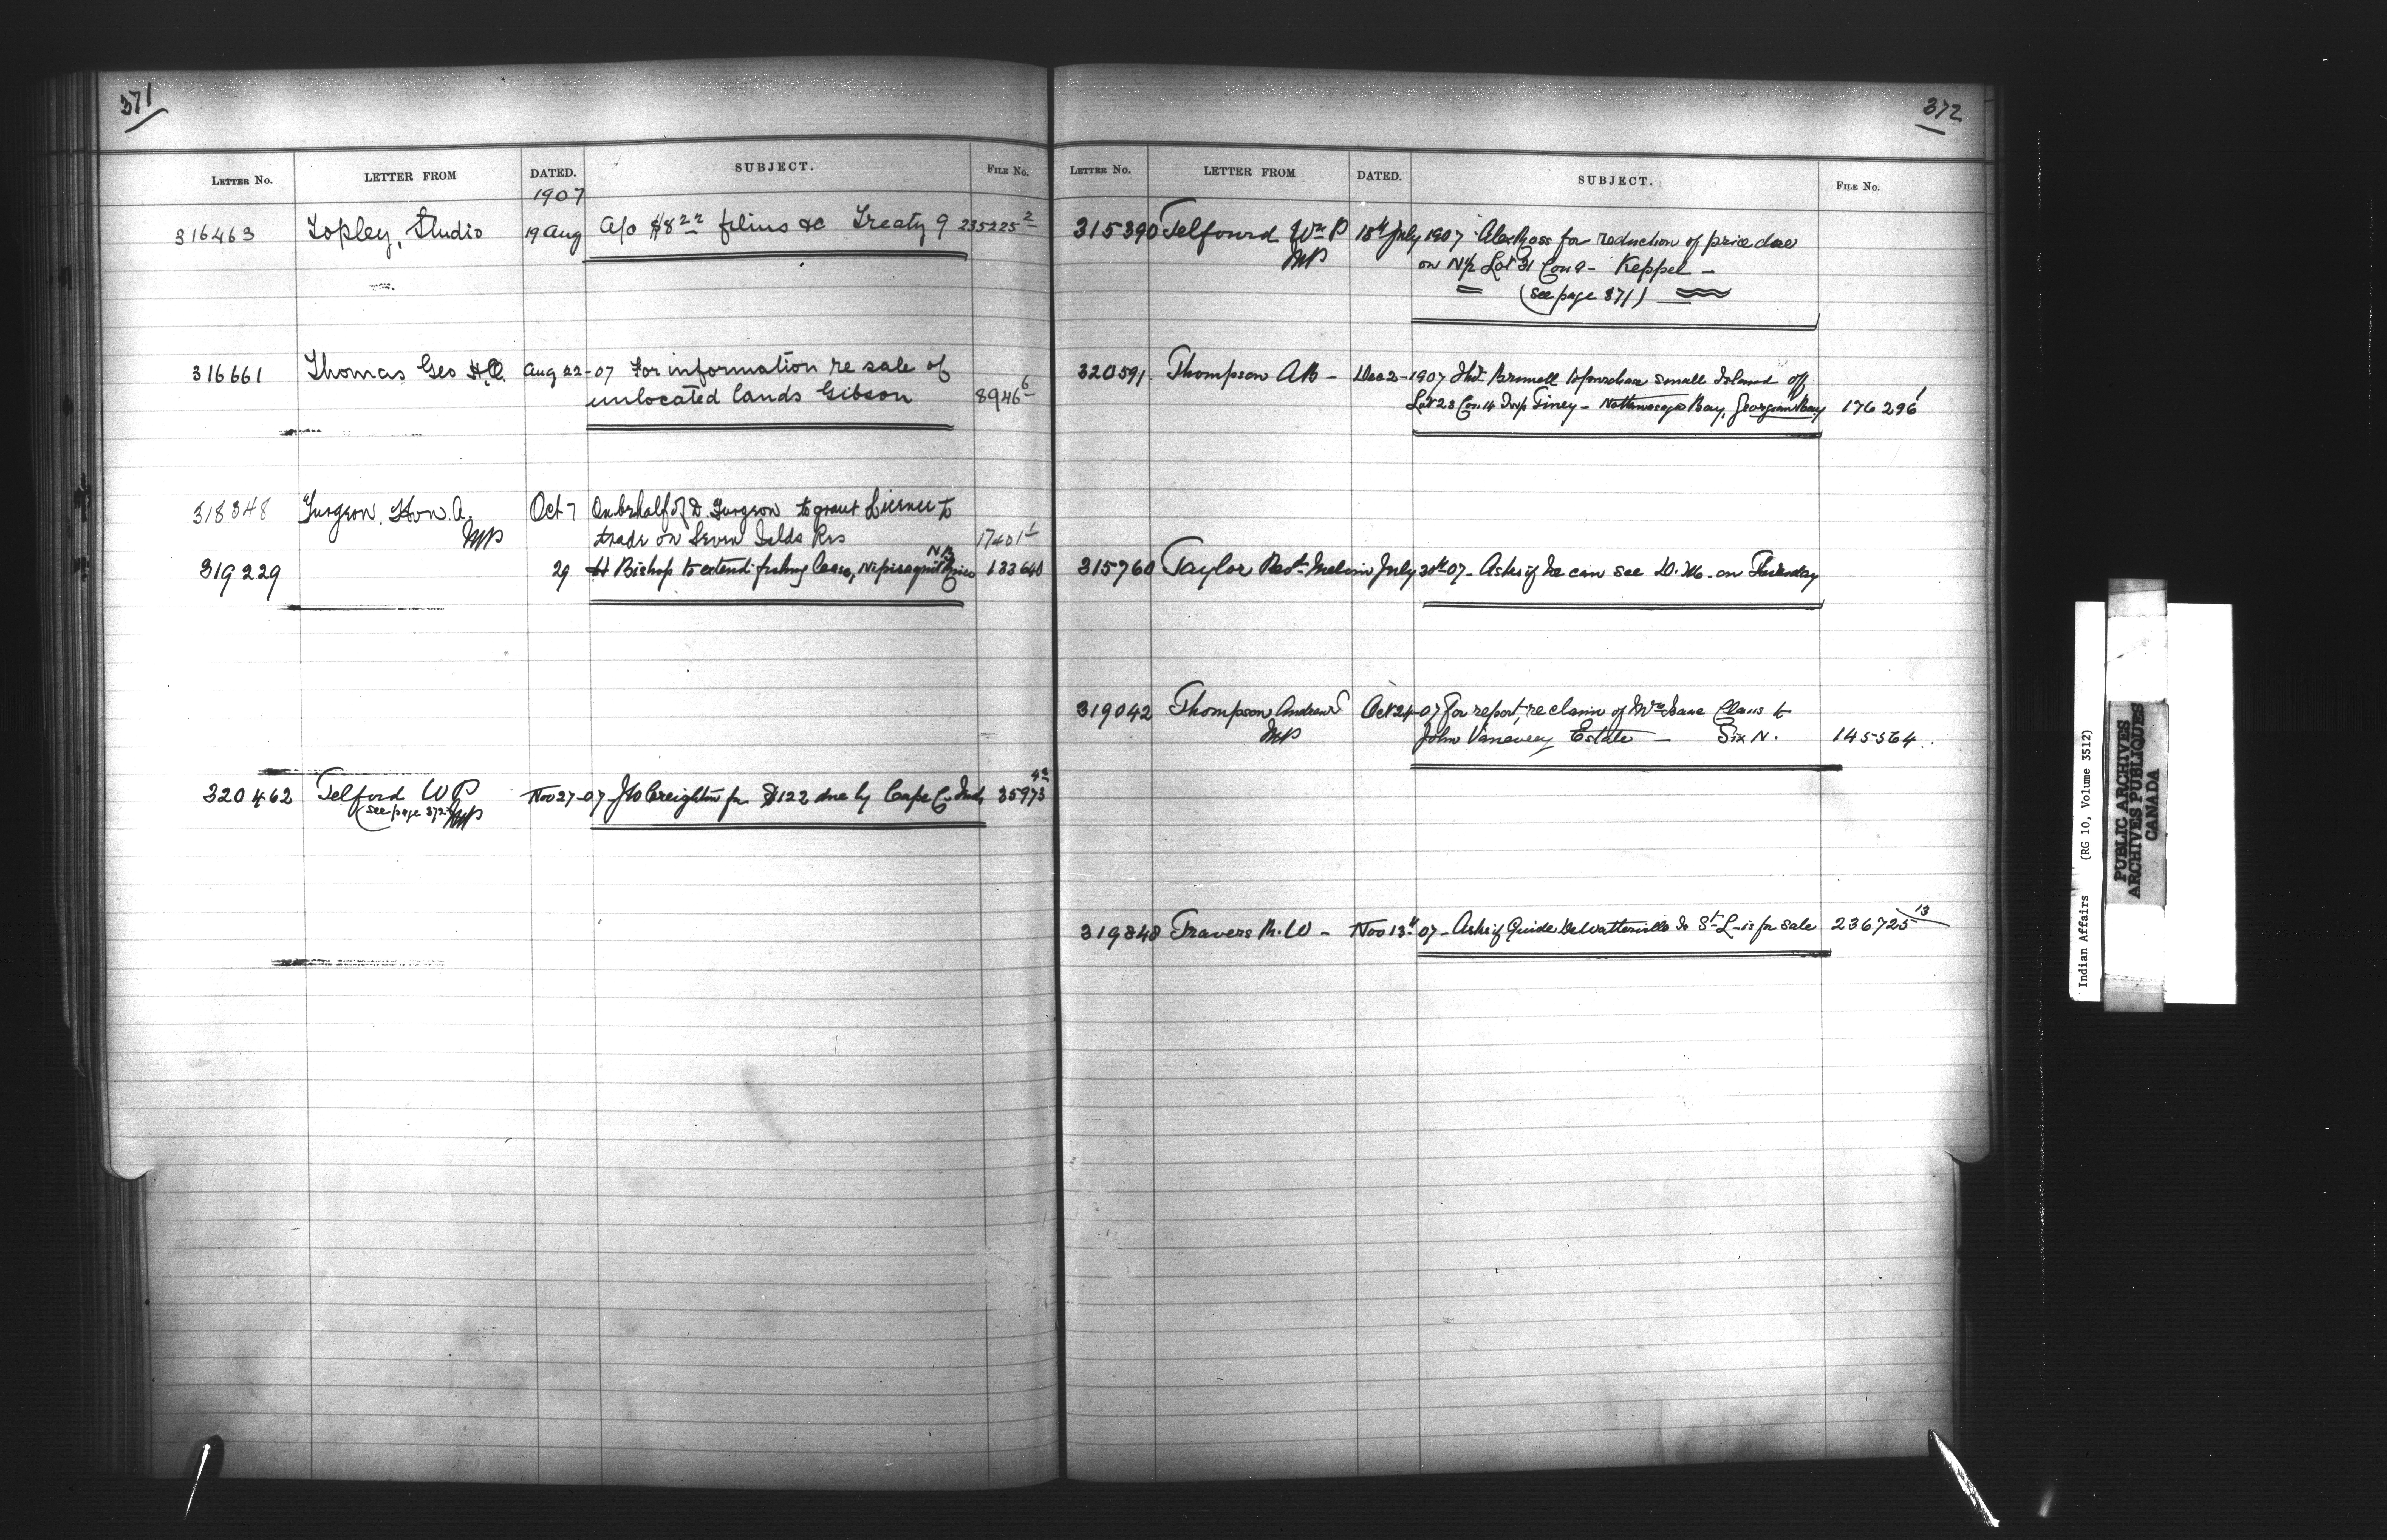 371
LETTER No. LETTER FROM DATED. SUBJECT. FILE No.
1907
316463 Topley, Studio 19 Aug A/c $8 films &c Treaty 9 235225 2
316661 Thomas Geo Aug 22-07 For information re sale of
unlocated lands Gibson 8946 6
318348 Turgeon. Hon. A. Oct 7 On behalf of D. Turgeon to grant License to
MP trade on Seven Islds Res 17401 1
319229 29 H Bishop to extend fishing lease, Nipisiguit River NB 133640
320462 Telford W P Nov 27-07 J W Creighton for $122 due by Cape C. Inds 35973
(see page 372) MP
372
LETTER No. LETTER FROM DATED. SUBJECT. FILE No.
315390 Telfourd Wm P 18th July 1907 Alex Ross for reduction of price due
MP on N½ Lot 31 Con 9 - Keppel -
(see page 371)
320591. Thompson AB - Dec 2-1907 Brunell to purchase small Island off
Lot 23 Con 14 Twp Tiney - Nottawasaga Bay, Georgian Bay 176296 1
315760 Taylor Melvin July 30th 07 - Asks if he can see D. M. on Thursday
319042 Thompson Andrew Oct 24-07 for report, re claim of Mrs Isaac Claus to
MP John Vanevery Estate - Six N. 145564.
319848 Travers R. W - Nov 13th 07 - Asks if Guide DeWatterville Is St L - is for sale 236725 13
Indian Affairs (RG 10, Volume 3512)
PUBLIC ARCHIVES
ARCHIVES PUBLIQUES
CANADA